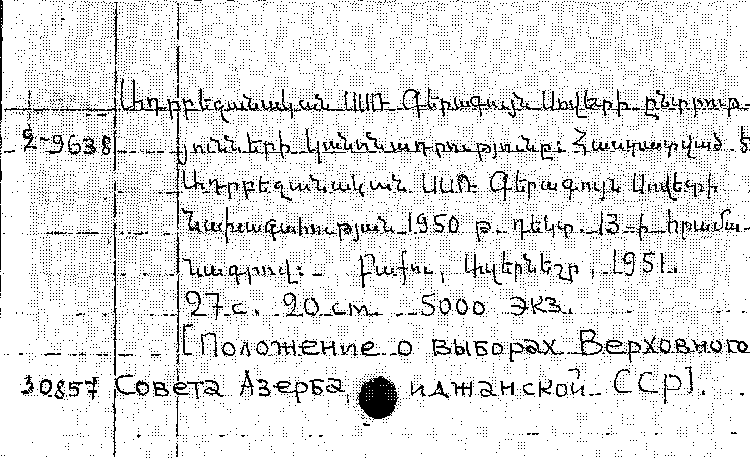 Ադրբեջանական ՍՍՌ Գերագույն Սովետի ընտրութ-
2-9638 յունների կանոնադրությունը: Հաստատված է
Ադրբեջանական ՍՍՌ Գերագույն Սովետի
Նախագահության 1950 թ. դեկտ. 13-ի հրամա-
նագրով: Բաքու, Ազերնեշր, 1951.
27 с. 20 см. 5000 экз.
[Положение о выборах Верховного
30857 Совета Азербаиджанской ССР].